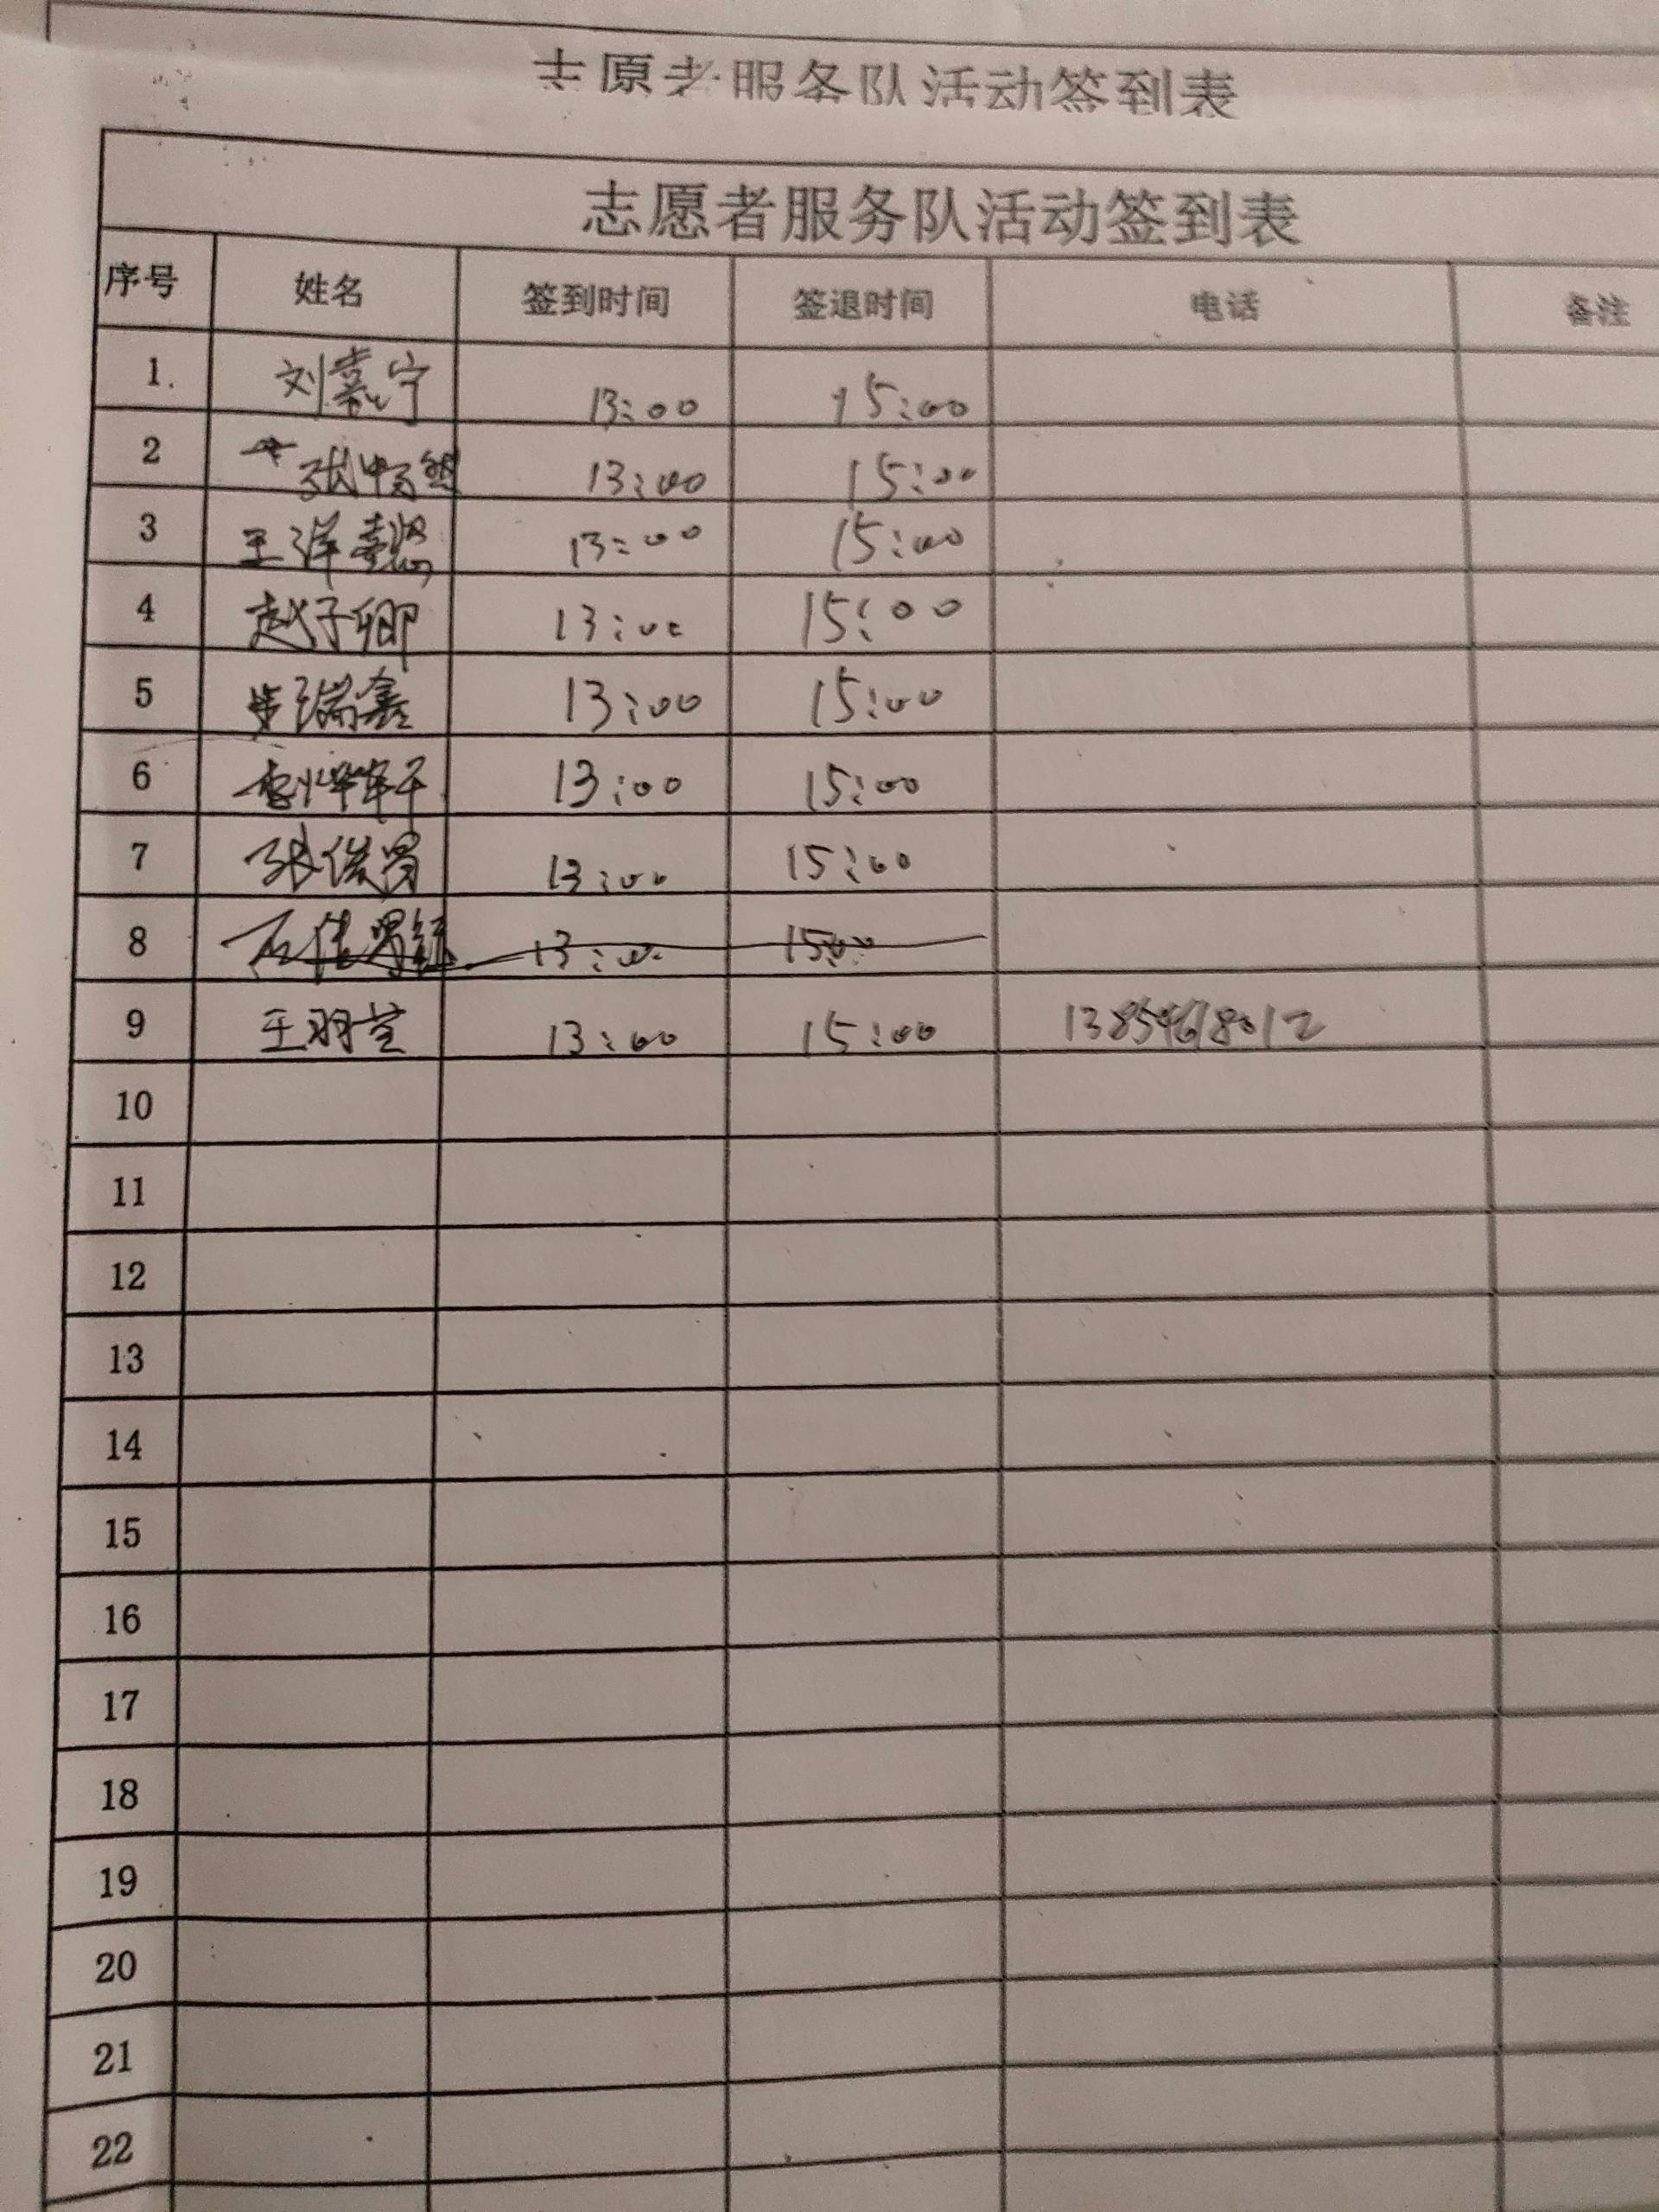 志愿者服务队活动签到表
志愿者服务队活动签到表
序号 姓名 签到时间 签退时间 电话 备注
1. 刘嘉宁 13:00 15:00
2 张畅 13:00 15:00
3 王洋懿 13:00 15:00
4 赵子卿 13:00 15:00
5 瑞鑫 13:00 15:00
6 13:00 15:00
7 张俊贤 13:00 15:00
8 13:00 15:00
9 王羽萱 13:00 15:00
10
11
12
13
14
15
16
17
18
19
20
21
22